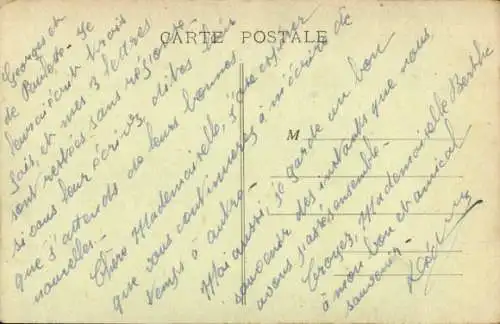 CARTE POSTALE
M
Georges et
de Paulette. Je
leur ai écrit trois
fois, et mes 3 lettres
sont restées sans réponse
si vous leur écrivez, dites leur
que j'attends de leurs bonnes
nouvelles.
Chère Mademoiselle, j'ose espérer
que vous continuerez à m'écrire de
temps à autre.
Moi aussi, je garde un bon
souvenir des instants que nous
avons passés ensemble.
Croyez, Mademoiselle Berthe
à mon bon et amical
souvenir.